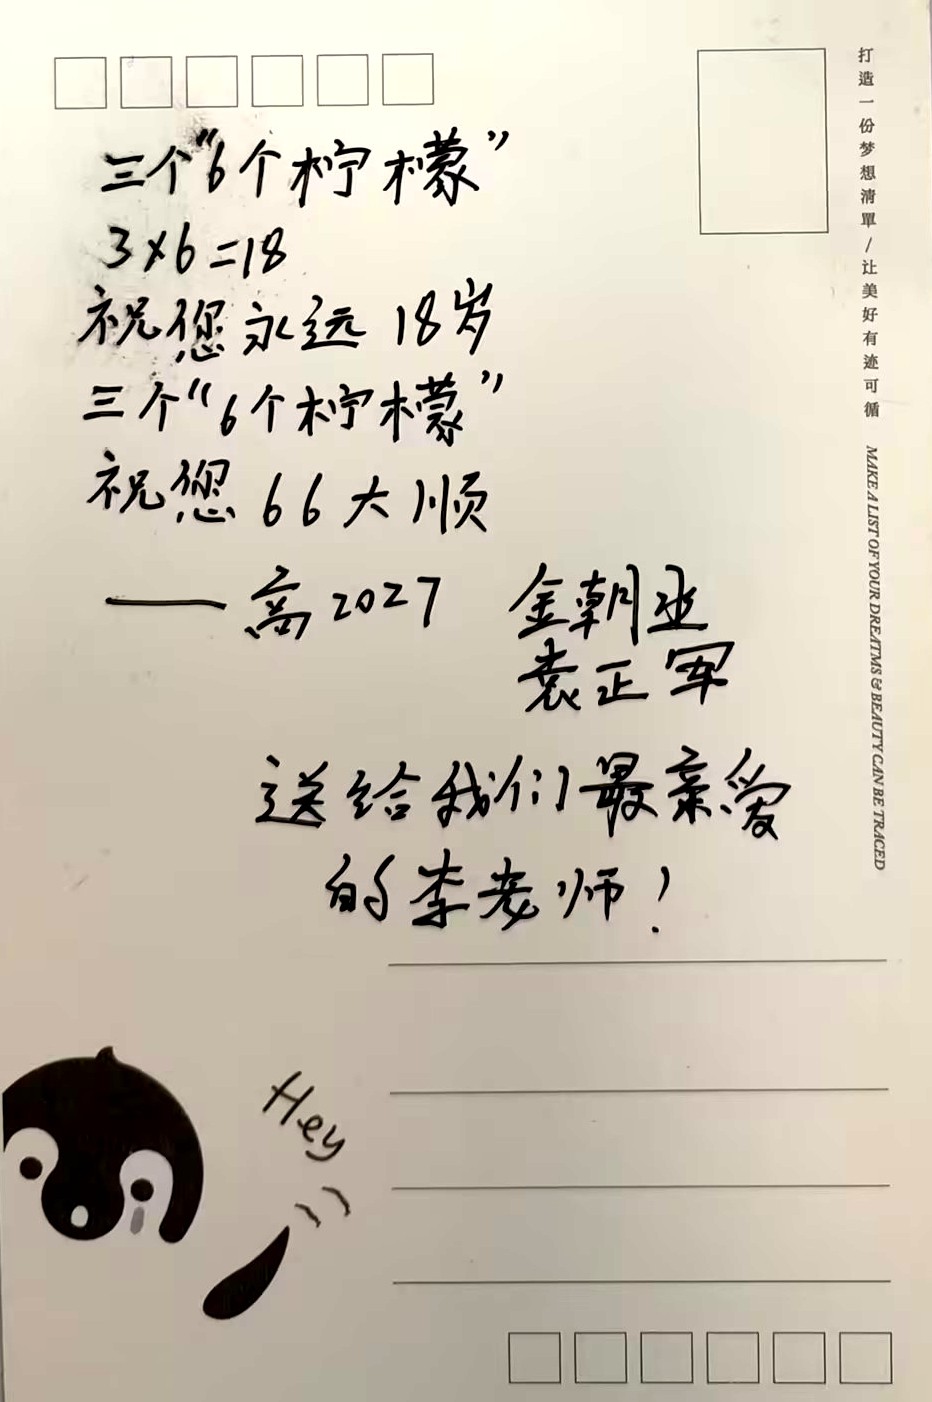 三个“6个柠檬”
3×6=18
祝您永远18岁
三个“6个柠檬”
祝您66大顺
——高2027 金朝丞
袁正军
送给我们最亲爱
的李老师!
打造一份梦想清單/让美好有迹可循
MAKE A LIST OF YOUR DREATMS & BEAUTY CAN BE TRACED
Hey